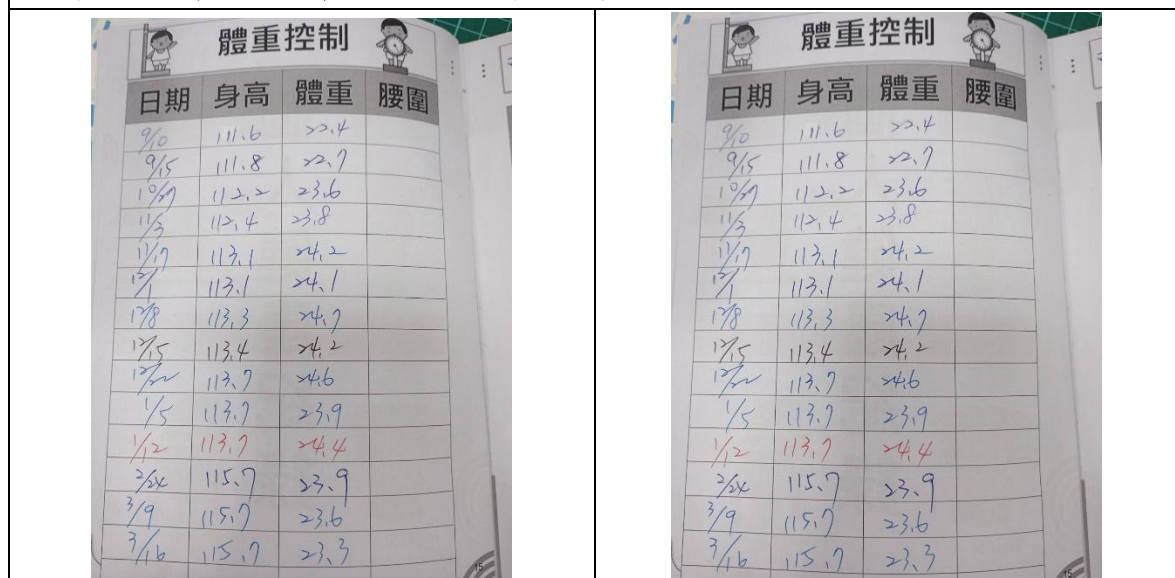 體重控制
日期 身高 體重 腰圍
9/10 111.6 22.4
9/15 111.8 22.7
10/27 112.2 23.6
11/3 112.4 23.8
11/17 113.1 24.2
12/1 113.1 24.1
12/8 113.3 24.7
12/15 113.4 24.2
12/22 113.7 24.6
1/5 113.7 23.9
1/12 113.7 24.4
2/24 115.7 23.9
3/9 115.7 23.6
3/16 115.7 23.3
15
體重控制
日期 身高 體重 腰圍
9/10 111.6 22.4
9/15 111.8 22.7
10/27 112.2 23.6
11/3 112.4 23.8
11/17 113.1 24.2
12/1 113.1 24.1
12/8 113.3 24.7
12/15 113.4 24.2
12/22 113.7 24.6
1/5 113.7 23.9
1/12 113.7 24.4
2/24 115.7 23.9
3/9 115.7 23.6
3/16 115.7 23.3
15